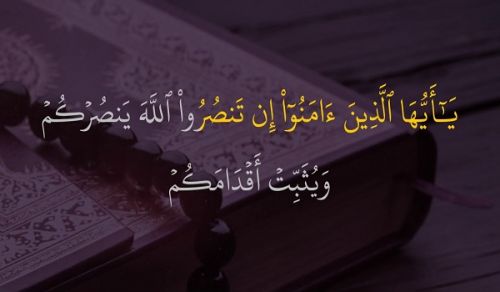 يَـٰٓأَيُّهَا ٱلَّذِينَ ءَامَنُوٓا۟ إِن تَنصُرُوا۟ ٱللَّهَ يَنصُرْكُمْ
وَيُثَبِّتْ أَقْدَامَكُمْ